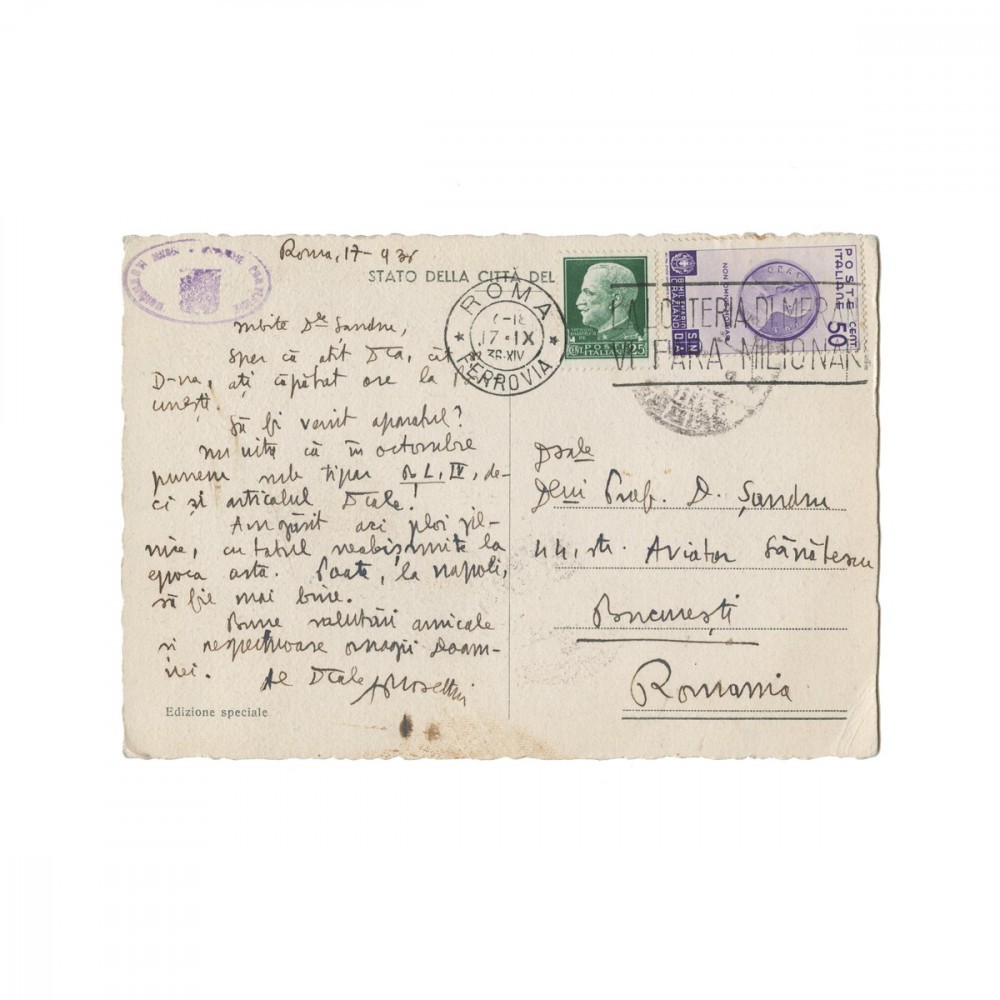 Roma, 17-9 36
STATO DELLA CITTÀ DEL
Iubite Dle Șandru,
Sper că atît Dta, cît și
D-na, ați căpătat ore la
cunești.
Să fi venit aparatul?
Nu uita că în octombre
punem sub tipar B L, IV, de-
ci și articolul Dtale!
Am găsit aci ploi zil-
nice, cu totul neobișnuite la
epoca asta. Poate, la Napoli,
să fie mai bine.
Bune salutări amicale
și respectuoase omagii Doam-
nei.
Al Dtale ARosetti
Edizione speciale
ROMA
17-IX
36-XIV
FERROVIA
POSTE
ITALIANE
CENT 25
POSTE
ITALIANE
CENT 50
BIMILLENARIO
ORAZIANO
NON OMNIS MORIAR
LA LOTTERIA DI MERA
VI FARA' MILIONAR
Dsale
Dlui Prof. D. Șandru
44, str. Aviator Sănătescu
București
Romania